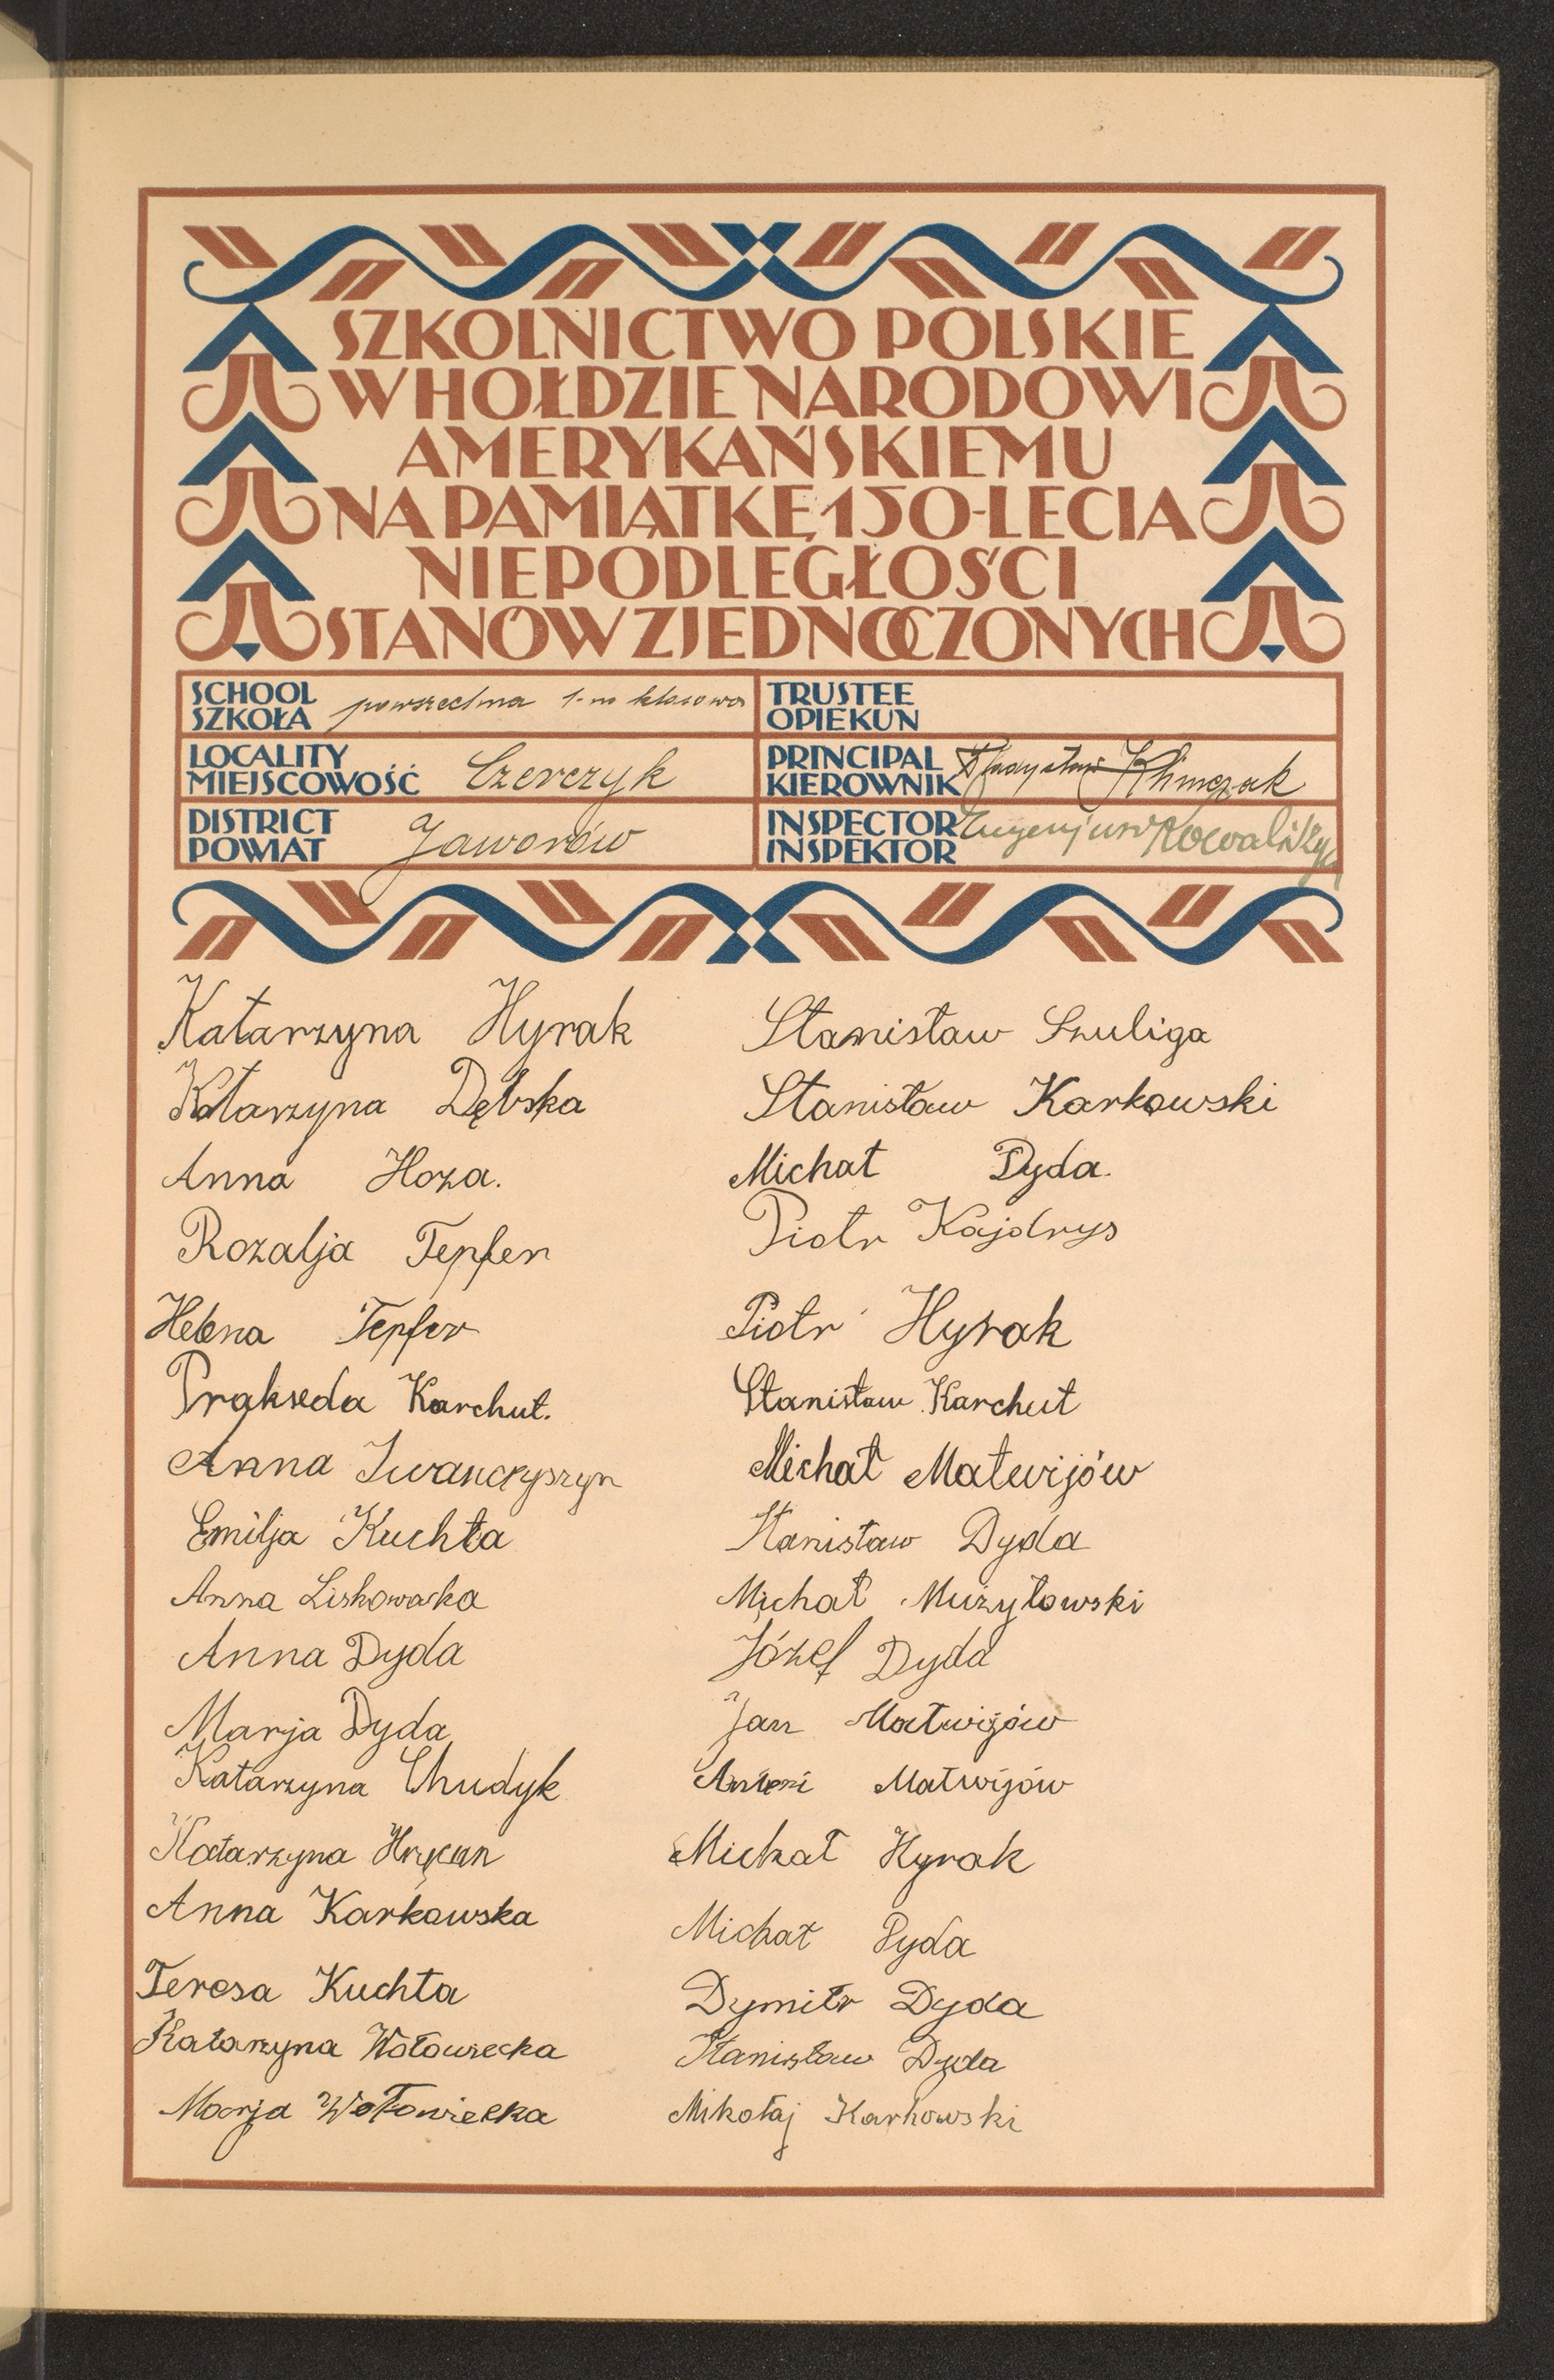 SZKOLNICTWO POLSKIE
W HOŁDZIE NARODOWI
AMERYKAŃSKIEMU
NA PAMIĄTKĘ 150-LECIA
NIEPODLEGŁOŚCI
STANÓW ZJEDNOCZONYCH
SCHOOL
SZKOŁA powszechna 1-no klasowa
TRUSTEE
OPIEKUN
LOCALITY
MIEJSCOWOŚĆ Czerczyk
PRINCIPAL
KIEROWNIK Władysław Klimczak
DISTRICT
POWIAT Jaworów
INSPECTOR
INSPEKTOR Eugenjusz
Katarzyna Hyrak
Katarzyna Dębska
Anna Hoza.
Rozalja Tepfer
Helena Tepfer
Prakseda Karchut.
Anna Iwanczyszyn
Emilja Kuchta
Anna Liskowacka
Anna Dyda
Marja Dyda
Katarzyna Chudyk
Katarzyna Hrycan
Anna Karkowska
Teresa Kuchta
Katarzyna Wołowiecka
Marja Wołowiecka
Stanisław Szuliga
Stanisław Karkowski
Michał Dyda.
Piotr Kajdrys
Piotr Hyrak
Stanisław Karchut
Michał Matwijów
Stanisław Dyda
Michał Mużyłowski
Józef Dyda
Jan Matwijów
Antoni Matwijów
Michał Hyrak
Michał Dyda
Dymitr Dyda
Stanisław Dyda
Mikołaj Karkowski